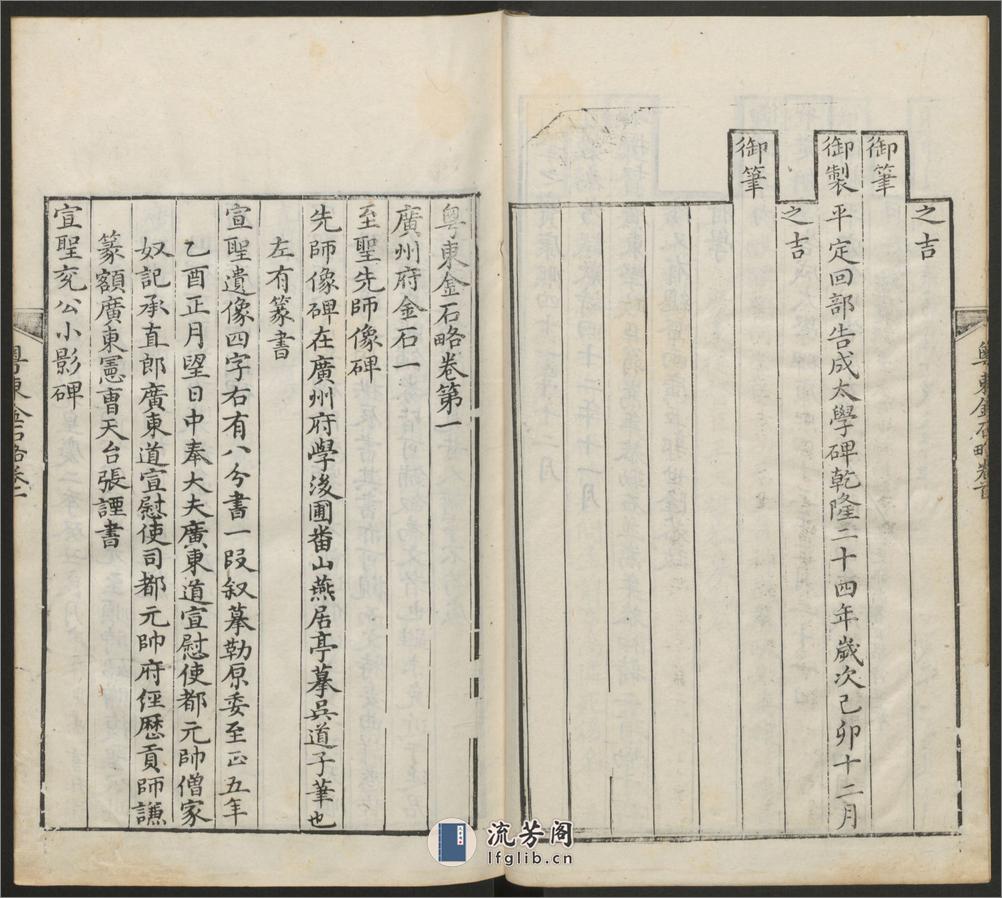 之吉
御筆
御製平定回部告成太學碑乾隆二十四年歲次己卯十二月
之吉
御筆
粵東金石略卷首
粵東金石略卷第一
廣州府金石一
至聖先師像碑
先師像碑在廣州府學後圃番山燕居亭摹吳道子筆也
左有篆書
宣聖遺像四字右有八分書一段叙摹勒原委至正五年
乙酉正月望日中奉大夫廣東道宣慰使都元帥僧家
奴記承直郎廣東道宣慰使司都元帥府經歷貢師謙
篆額廣東憲曹天台張諲書
宣聖兖公小影碑
粵東金石略卷一
流芳阁
lfglib.cn